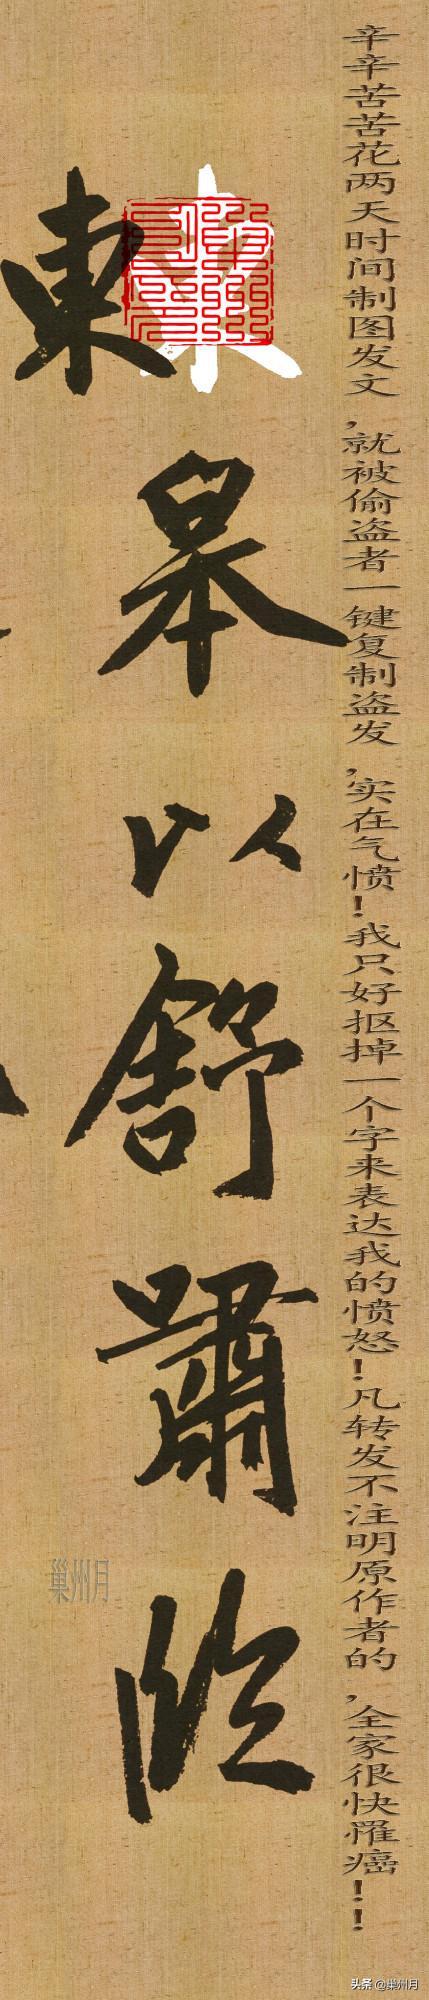 辛辛苦苦花两天时间制图发文,就被偷盗者一键复制盗发,实在气愤!我只好抠掉一个字来表达我的愤怒!凡转发不注明原作者的,全家很快罹癌!!
東皋以舒嘯臨
巢州月
头条 @巢州月